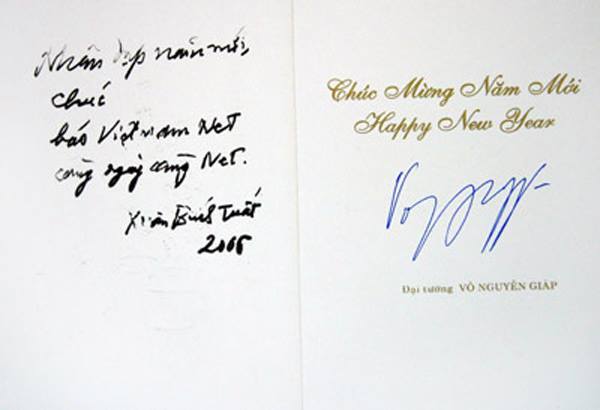 Nhân dịp năm mới,
chúc
báo Việt nam Net
càng ngày càng Net.
Xuân Bính Tuất
2006
Chúc Mừng Năm Mới
Happy New Year
Đại tướng VÕ NGUYÊN GIÁP